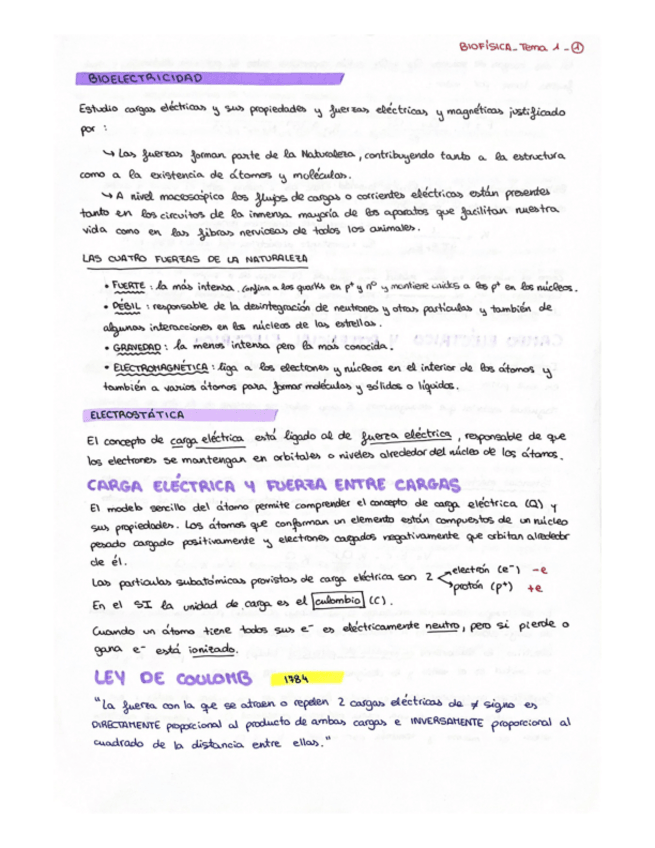 BIOFÍSICA_Tema 1_①
BIOELECTRICIDAD
Estudio cargas eléctricas y sus propiedades y fuerzas eléctricas y magnéticas justificado
por :
↳ Las fuerzas forman parte de la Naturaleza, contribuyendo tanto a la estructura
como a la existencia de átomos y moléculas.
↳ A nivel macroscópico los flujos de cargas o corrientes eléctricas están presentes
tanto en los circuitos de la inmensa mayoría de los aparatos que facilitan nuestra
vida como en las fibras nerviosas de todos los animales.
LAS CUATRO FUERZAS DE LA NATURALEZA
• FUERTE : la más intensa. Confina a los quarks en p⁺ y n⁰ y mantiene unidos a los p⁺ en los núcleos.
• DÉBIL : responsable de la desintegración de neutrones y otras partículas y también de
algunas interacciones en los núcleos de las estrellas.
• GRAVEDAD : la menos intensa pero la más conocida.
• ELECTROMAGNÉTICA : liga a los electrones y núcleos en el interior de los átomos y
también a varios átomos para formar moléculas y sólidos o líquidos.
ELECTROSTÁTICA
El concepto de carga eléctrica está ligado al de fuerza eléctrica, responsable de que
los electrones se mantengan en orbitales o niveles alrededor del núcleo de los átomos.
CARGA ELÉCTRICA Y FUERZA ENTRE CARGAS
El modelo sencillo del átomo permite comprender el concepto de carga eléctrica (Q) y
sus propiedades. Los átomos que conforman un elemento están compuestos de un núcleo
pesado cargado positivamente y electrones cargados negativamente que orbitan alrededor
de él.
Las partículas subatómicas provistas de carga eléctrica son 2 electrón (e⁻) -e
protón (p⁺) +e
En el SI la unidad de carga es el culombio (C).
Cuando un átomo tiene todos sus e⁻ es eléctricamente neutro, pero si pierde o
gana e⁻ está ionizado.
LEY DE COULOMB 1784
"La fuerza con la que se atraen o repelen 2 cargas eléctricas de ≠ signo es
DIRECTAMENTE proporcional al producto de ambas cargas e INVERSAMENTE proporcional al
cuadrado de la distancia entre ellas."